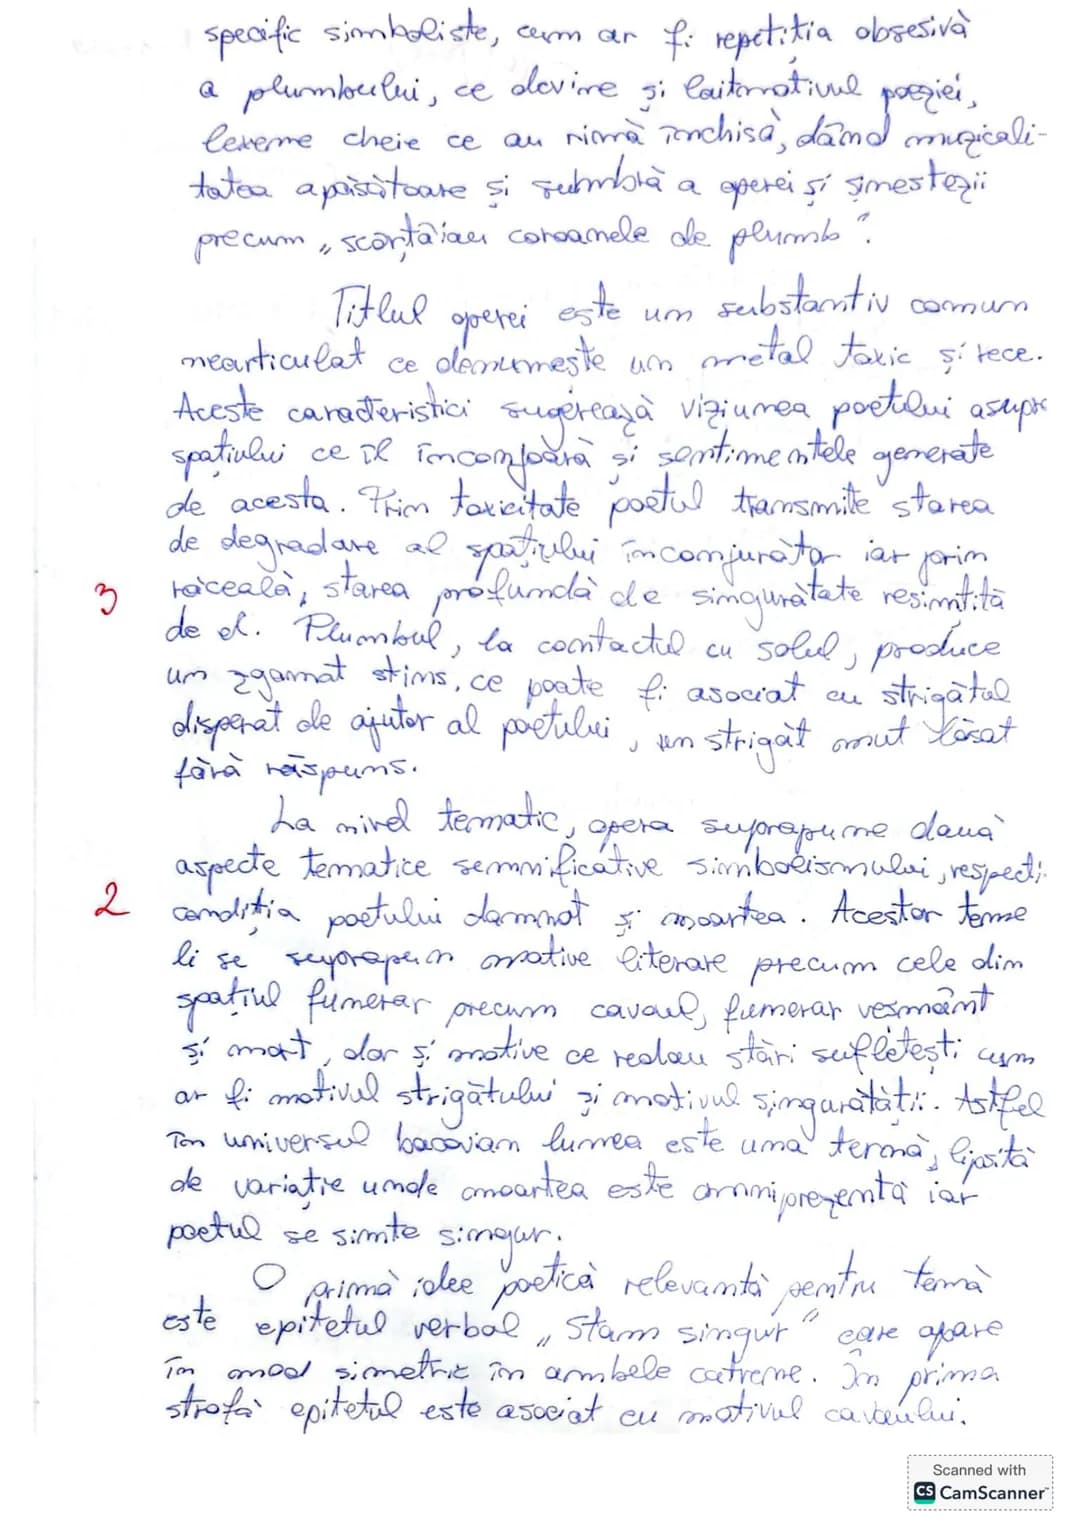 specific simboliste, cum ar fi repetiția obsesivă
a plumbului, ce devine și laitmotivul poeziei,
lexeme cheie ce au rimă închisă, dând muzicali-
tatea apăsătoare și sumbră a operei și sinestezii
precum „scârțâiau coroanele de plumb".
Titlul operei este un substantiv comun
nearticulat ce denumește un metal toxic și rece.
Aceste caracteristici sugerează viziunea poetului asupra
spațiului ce îl înconjoară și sentimentele generate
de acesta. Prin toxicitate poetul transmite starea
de degradare al spațiului înconjurător iar prin
3 răceală, starea profundă de singurătate resimțită
de el. Plumbul, la contactul cu solul, produce
un zgomot stins, ce poate fi asociat cu strigătul
disperat de ajutor al poetului, un strigăt mut lăsat
fără răspuns.
La nivel tematic, opera suprapune două
aspecte tematice semnificative simbolismului, respectiv
2 condiția poetului damnat și moartea. Acestor teme
li se suprapun motive literare precum cele din
spațiul funerar precum cavoul, funerar vesmânt
și mort, dar și motive ce redau stări sufletești cum
ar fi motivul strigătului și motivul singurătății. Astfel
în universul bacovian lumea este una ternă, lipsită
de variație unde moartea este omniprezentă iar
poetul se simte singur.
O primă idee poetică relevantă pentru temă
este epitetul verbal „Stam singur" care apare
în mod simetric în ambele catrene. În prima
strofă epitetul este asociat cu motivul cavoului.
Scanned with
CS CamScanner